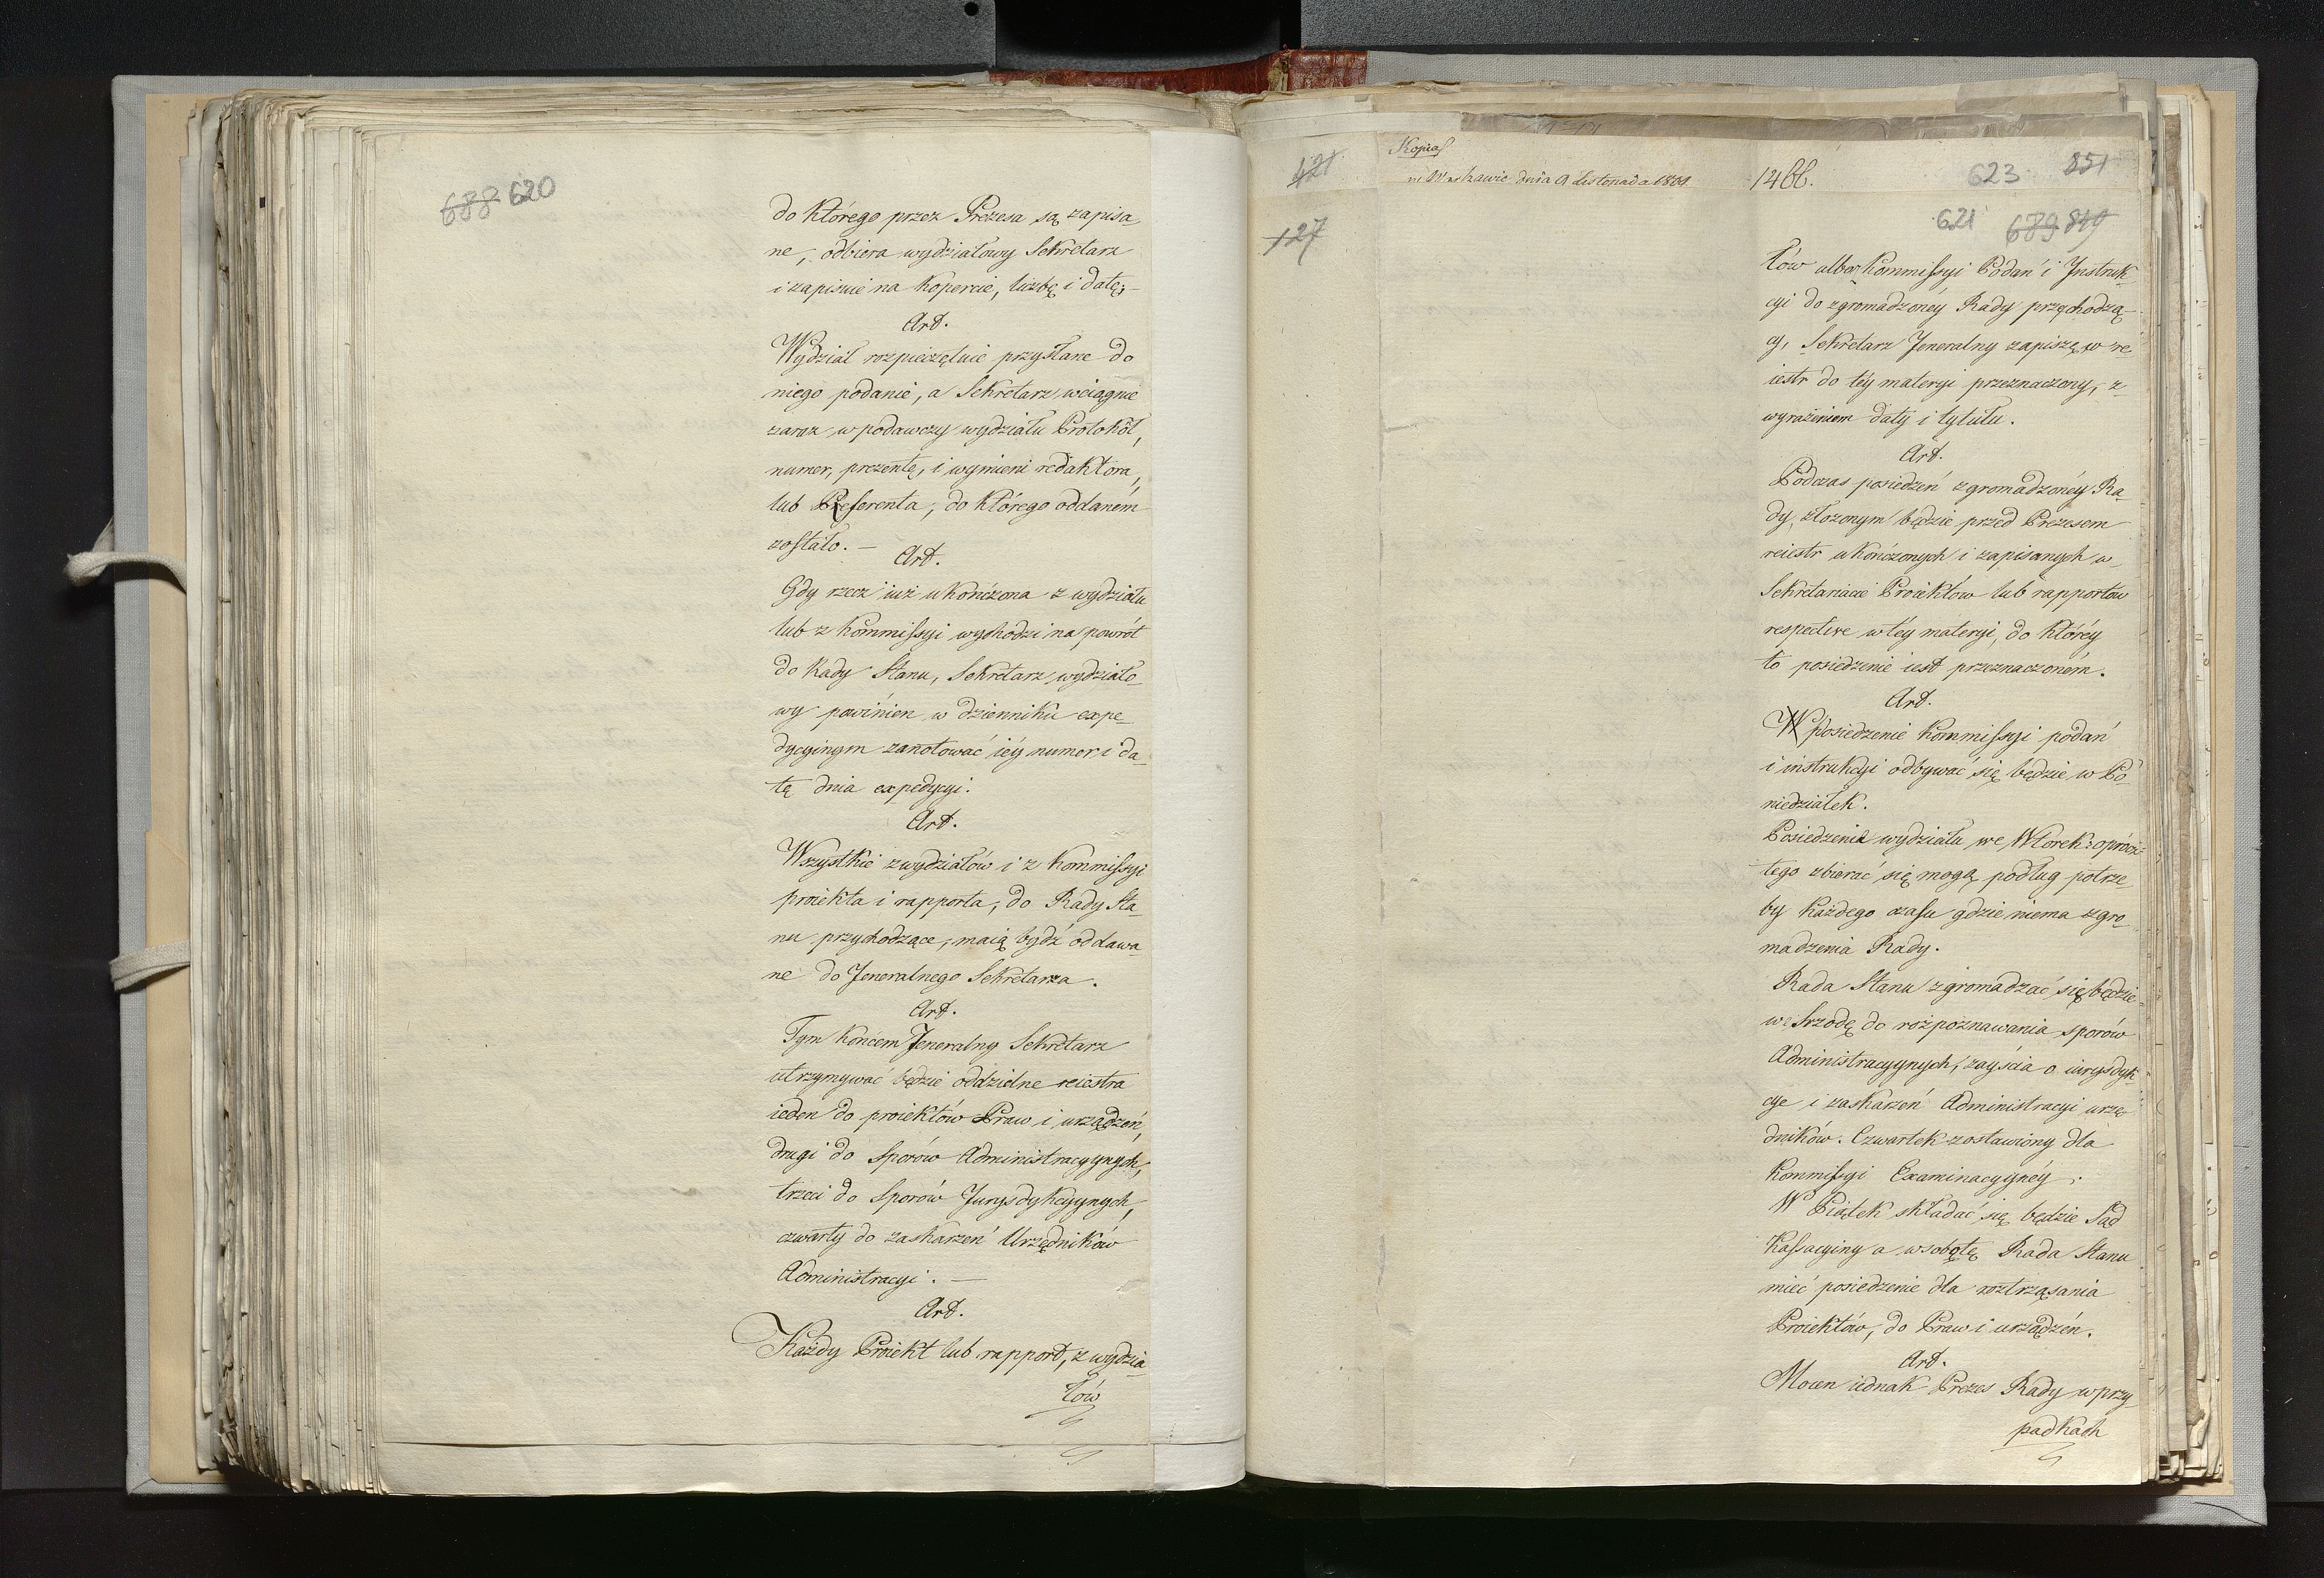 688 620
do którego przez Prezesa są zapisa_
ne, odbiera wydziałowy Sekretarz
i zapisuie na kopercie, liczbę i datę;_
Art.
Wydział rozpieczętuie przysłane do
niego podanie, a Sekretarz wciągnie
zaraz w podawczy wydziału Protokół,
numer, prezentę, i wymieni redaktora,
lub Referenta, do którego oddaném
zostało. _
Art.
Gdy rzecz iuż ukończona z wydziału
lub z kommissyi wychodzi na powrót
do Rady Stanu, Sekretarz wydziało_
wy powinien w dzienniku expe_
dycyinym zanotować iéy numer i da_
tę dnia expedycyi.
Art.
Wszystkie z wydziałów i z Kommissyi
proiekta i rapporta, do Rady Sta_
nu przychodzące, maią bydź oddawa_
ne do Jeneralnego Sekretarza.
Art.
Tym końcem Jeneralny Sekretarz
utrzymywać będzie oddzielne reiestra
ieden do proiektów Praw i urządzeń,
drugi do sporów Administracyynych,
trzeci do Sporów Jurysdykcyynych,
czwarty do zaskarżeń Urzędników
Administracyi. _
Art.
Każdy Proiekt lub rapport, z wydzia_
łów
421
Kopia
w Warszawie dnia 9 Listopada 1809
1466.
623 851
127
621 689 849
łów albo Kommissyi Podań i Instruk_
cyi do zgromadzonéy Rady przychodzą_
cy, Sekretarz Jeneralny zapiszę w re_
iestr do téy materyi przeznaczony, z
wyrażeniem daty i tytułu.
Art.
Podczas posiedzeń zgromadzonéy Ra_
dy, złożonym będzie przed Prezesem
reiestr ukończonych i zapisanych w
Sekretariacie Proiektów lub rapportów
respective w téy materyi, do któréy
to posiedzenie iest przeznaczoném.
Art.
Posiedzenie Kommissyi podań
i instrukcyi odbywać się będzie w Po_
niedziałek.
Posiedzenia wydziału we Wtorek: oprócz
tego zbierać się mogą podług potrze_
by każdego czasu gdzie niema zgro_
madzenia Rady.
Rada Stanu zgromadzać się będzie
we Srzodę do rozpoznawania sporów
Administracyynych, zayścia o iurysdyk_
cye i zaskarżeń Administracyi urzę_
dników. Czwartek zostawiony dla
Kommissyi Examinacyynéy.
W Piątek składać się będzie Sąd
Kassacyiny a w sobotę Rada Stanu
mieć posiedzenie dla roztrząsania
Proiektów, do Praw i urządzeń.
Art.
Mocen iednak Prezes Rady w przy_
padkach